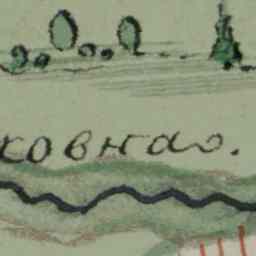 ковная.